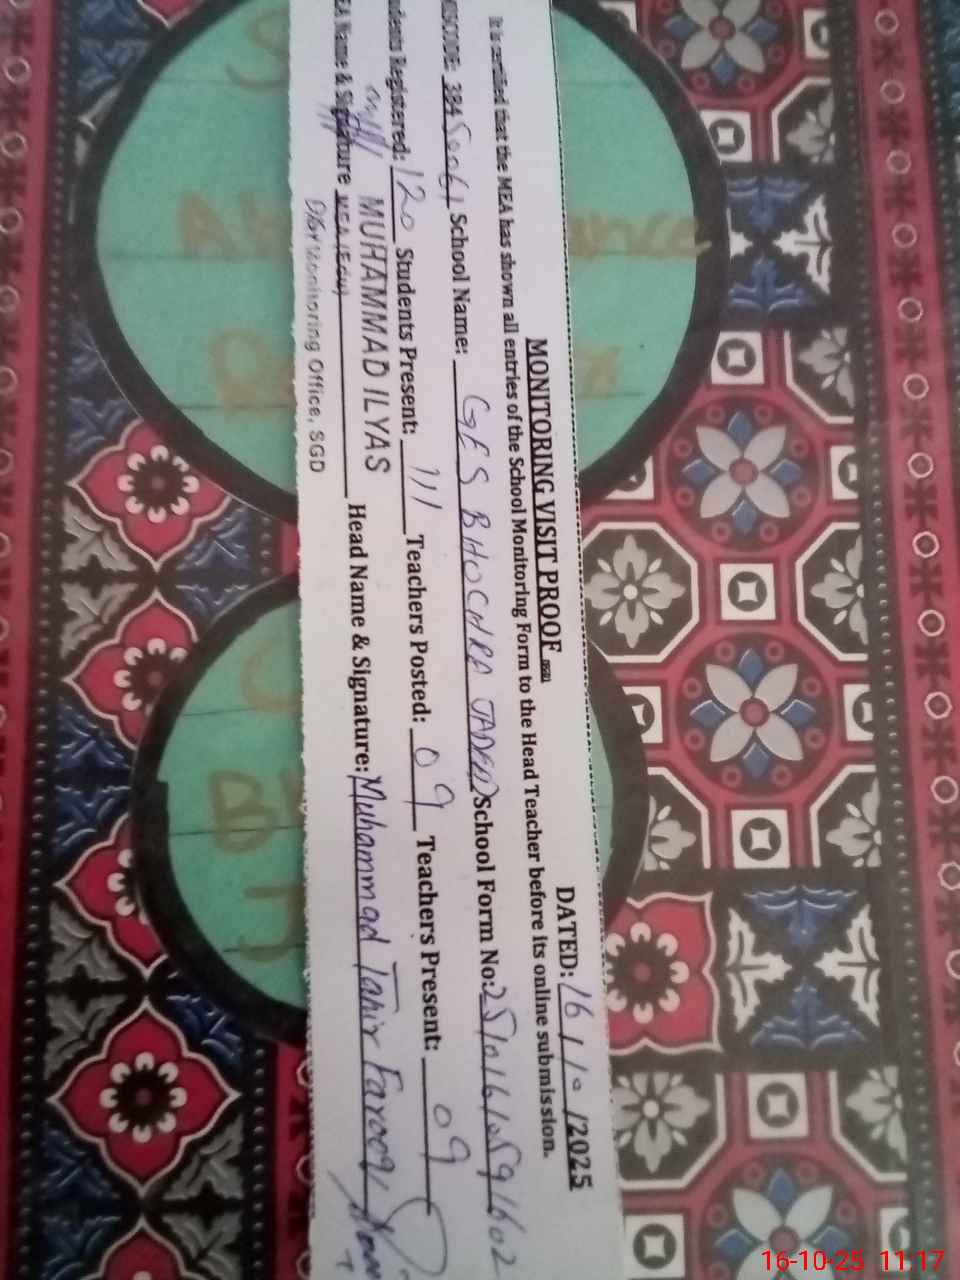 MONITORING VISIT PROOF DATED: 16/10/2025
It is certified that the MEA has shown all entries of the School Monitoring Form to the Head Teacher before its online submission.
384 50061 School Name: GES BHOCHRA JADEED School Form No: 25101610591602
Registered: 120 Students Present: 111 Teachers Posted: 09 Teachers Present: 09
MUHAMMAD ILYAS
Name & Signature MEA (Edu) Head Name & Signature: Muhammad Tahir Farooq
Monitoring Office, SGD
16-10-25 11:17